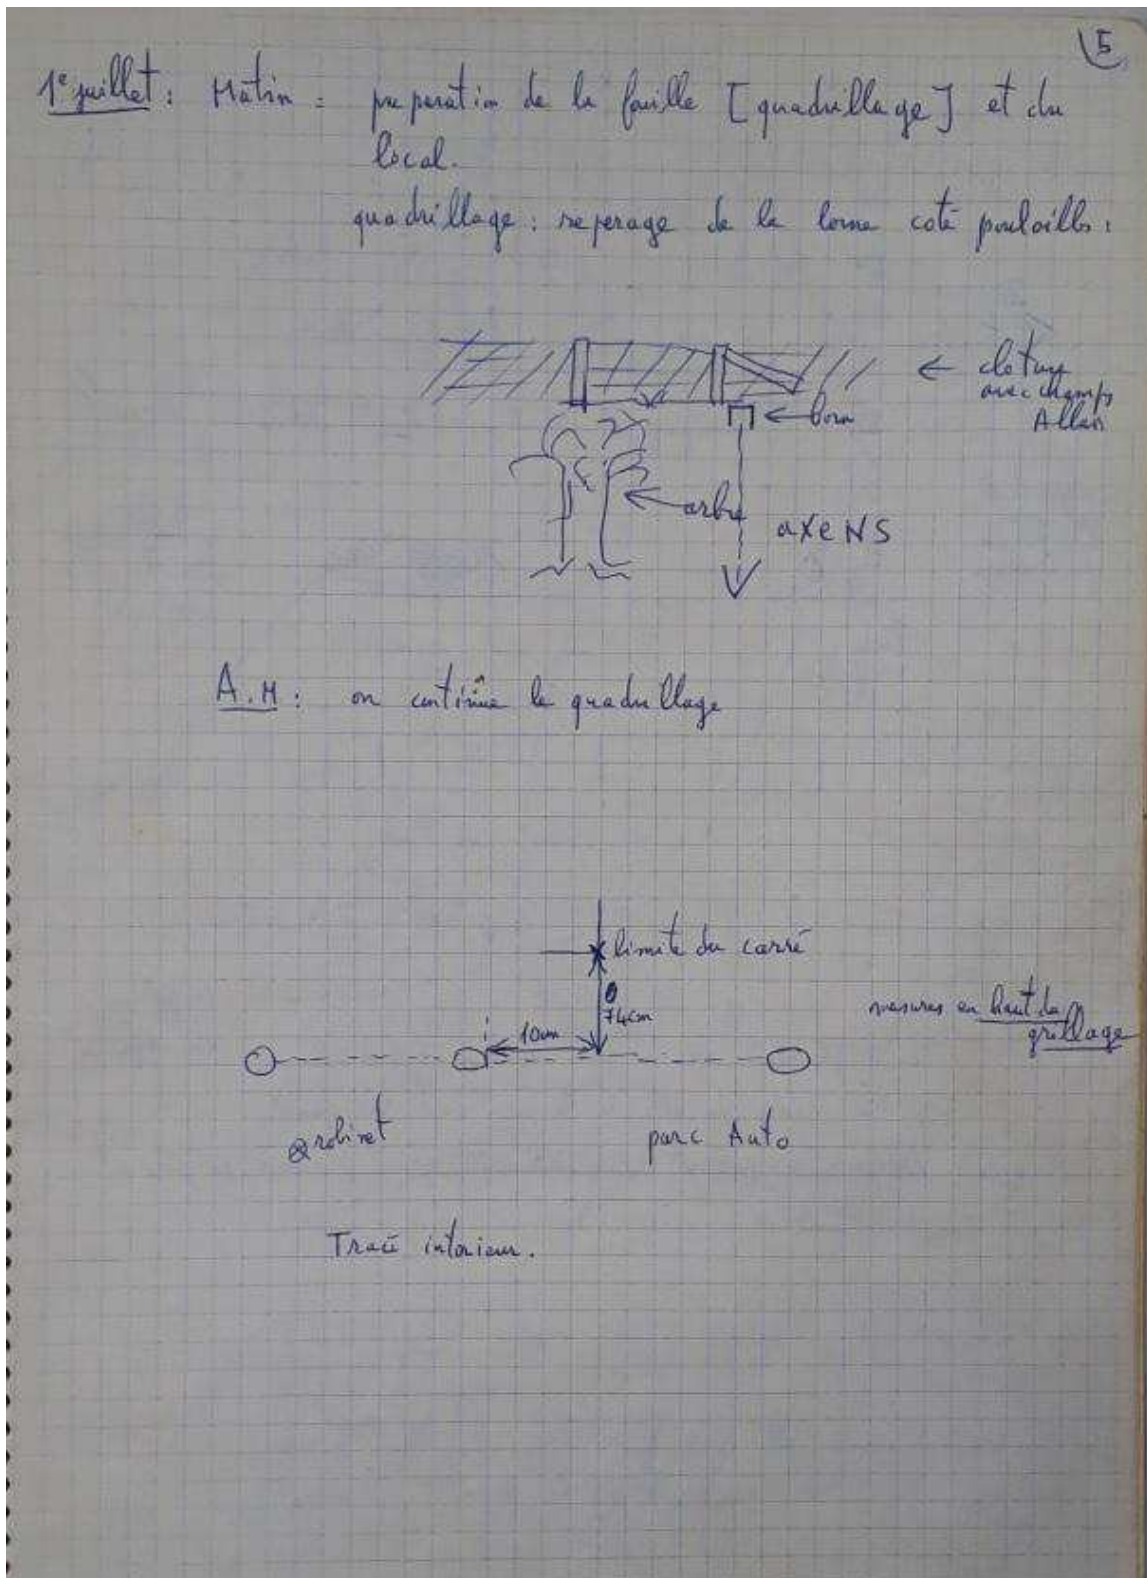 5
1e juillet : Matin : preparation de la fouille [quadrillage] et du
local.
quadrillage : reperage de la borne coté :
← cloture
avec champs
Allais
← born
← arbre
axe NS
A.M : on continue le quadrillage
limite du carré
74cm
10cm
mesures en haut du
grillage
robinet
parc Auto
Tracé interieur.